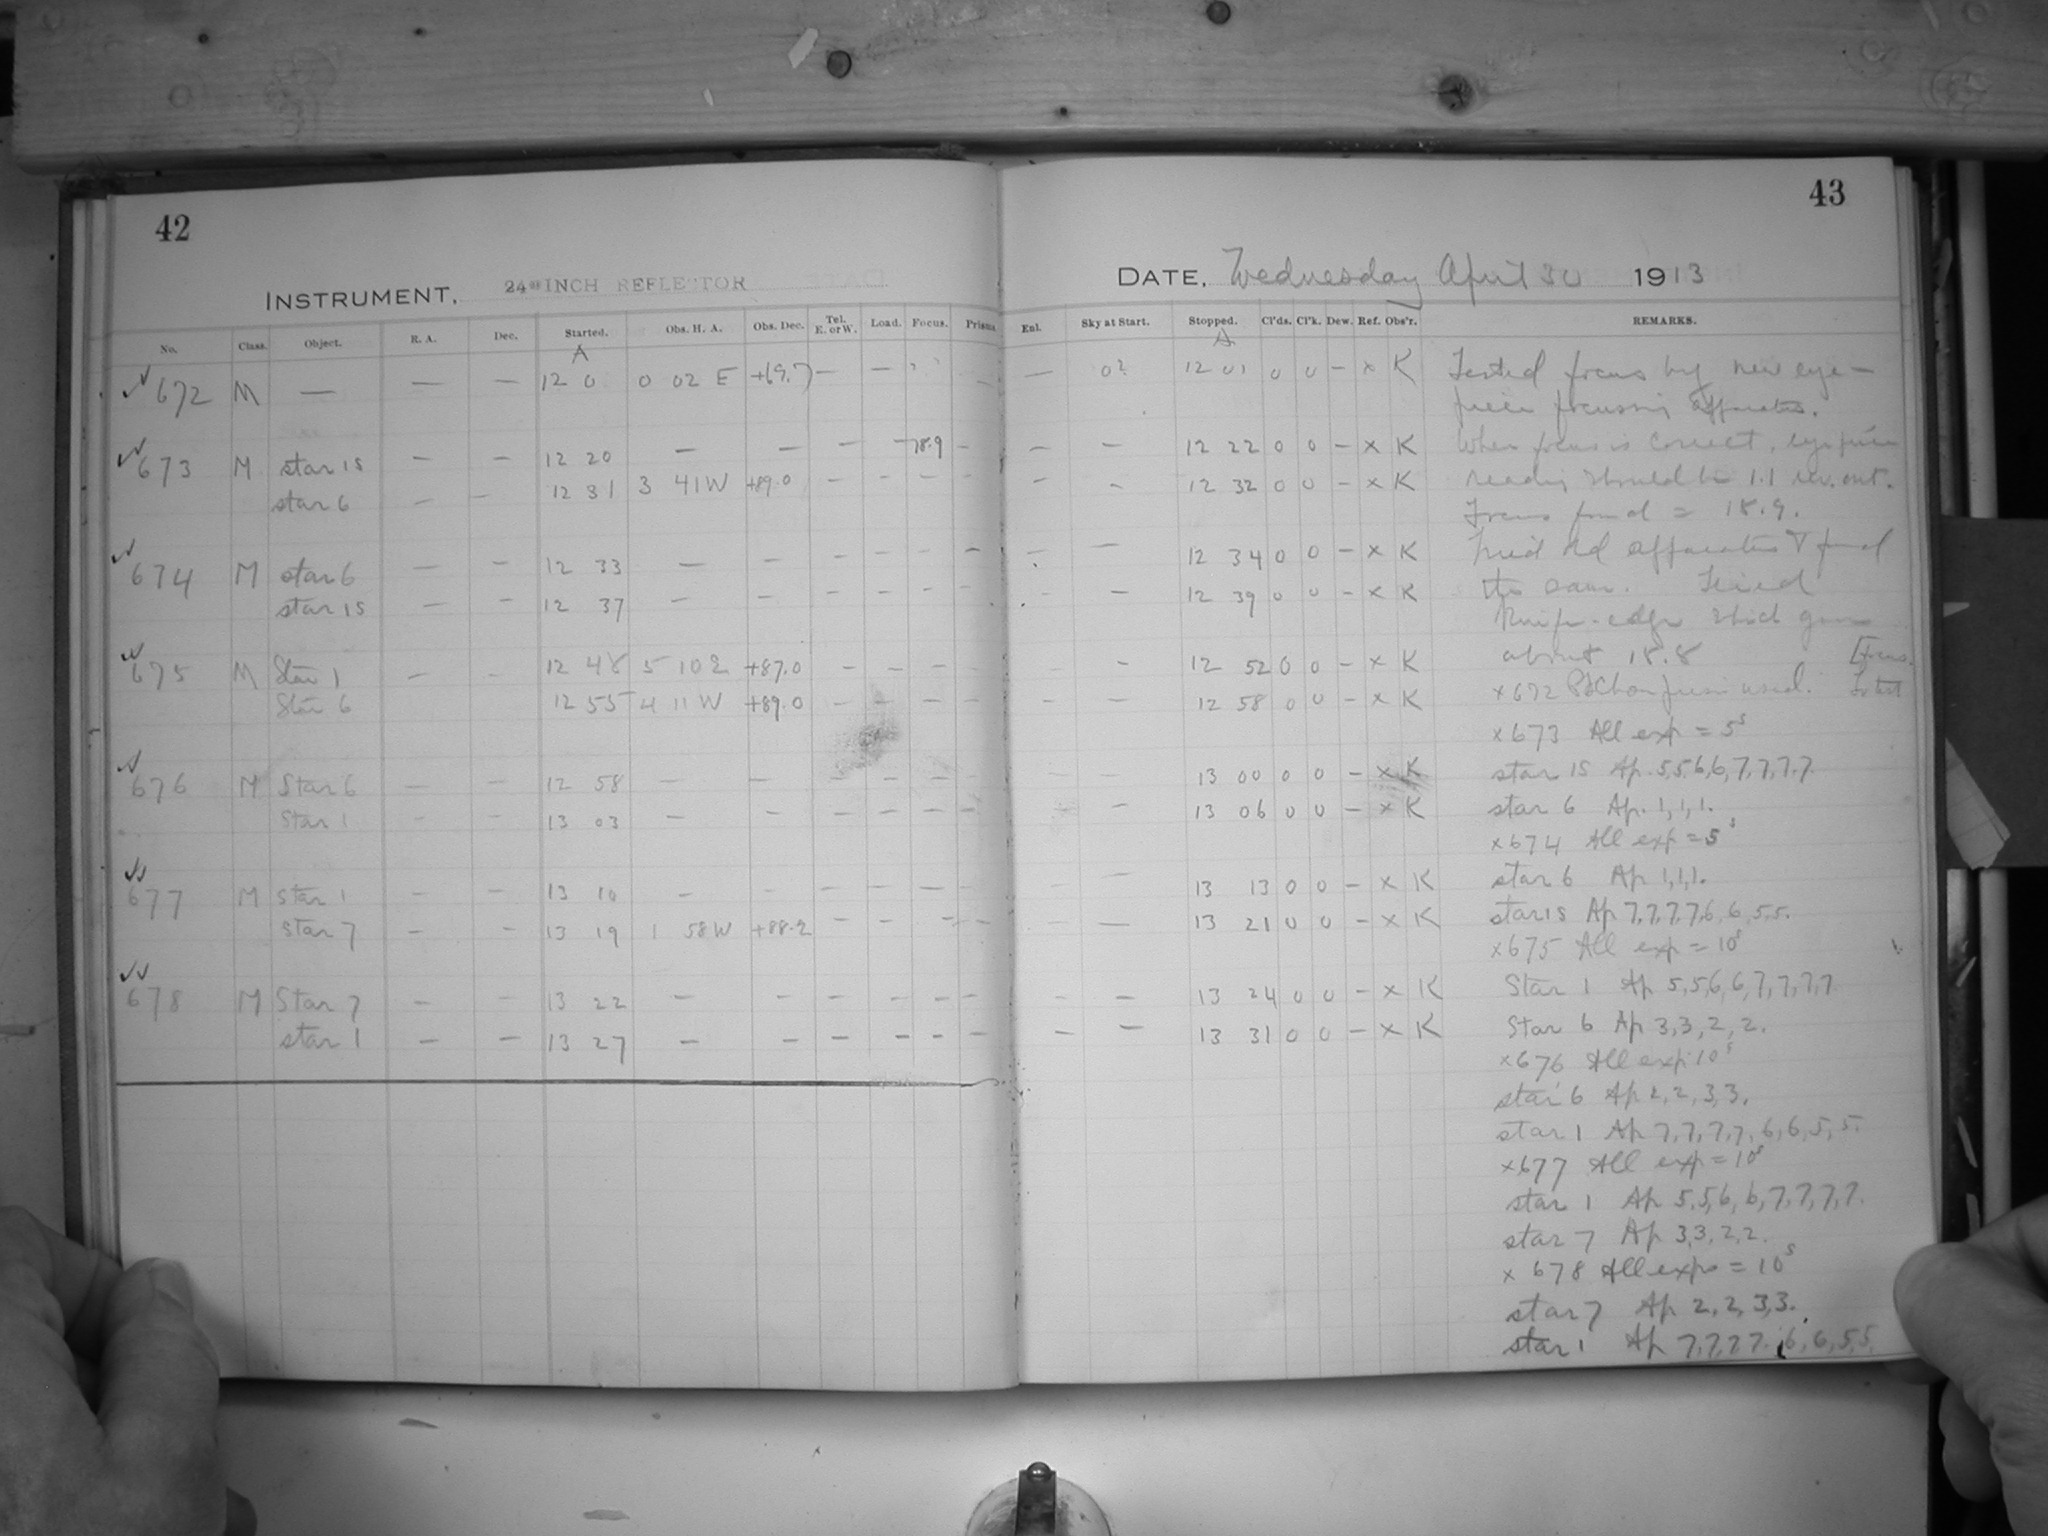 42
INSTRUMENT. 24 INCH REFLECTOR
No. Class. Object. R. A. Dec. Started. Obs. H. A. Obs. Dec. Tel. E. or W. Load. Focus. Prisms
A
672 M — — — 12 0 0 02 E +69.7 — —
673 M star 15 — — 12 20 — — — — 18.9 —
star 6 — — 12 31 3 41 W +89.0 — — — —
674 M star 6 — — 12 33 — — — — — —
star 15 — — 12 37 — — — — — —
675 M Star 1 — — 12 48 5 10 E +87.0 — — — —
Star 6 12 55 4 11 W +89.0 — — — —
676 M Star 6 — — 12 58 — — — — — —
Star 1 — — 13 03 — — — — — —
677 M Star 1 — — 13 10 — — — — — —
star 7 — — 13 19 1 58 W +88.2 — — — —
678 M Star 7 — — 13 22 — — — — — —
star 1 — — 13 27 — — — — — —
43
DATE, Wednesday April 30 1913
Enl. Sky at Start. Stopped. Cl'ds. Cl'k. Dew. Ref. Obs'r. REMARKS.
A
— 0? 12 01 0 0 – x K Tested focus by new eye-
piece focussing apparatus.
— — 12 22 0 0 – x K When focus is correct, eyepiece
— — 12 32 0 0 – x K reading should be 1.1 rev. out.
Focus found = 18.9.
— — 12 34 0 0 – x K Tried old apparatus & found
— — 12 39 0 0 – x K the same. Tried
Knife-edge which gave
— — 12 52 0 0 – x K about 18.8 [focus.
— — 12 58 0 0 – x K x672 used. To test
x673 All exp = 5s
— — 13 00 0 0 – x K star 15 Ap. 5,5,6,6,7,7,7,7.
— — 13 06 0 0 – x K star 6 Ap. 1,1,1.
x674 All exp = 5s
— — 13 13 0 0 – x K star 6 Ap 1,1,1.
— — 13 21 0 0 – x K star 15 Ap 7,7,7,7,6,6,5,5.
x675 All exp = 10s
— — 13 24 0 0 – x K Star 1 Ap 5,5,6,6,7,7,7,7
— — 13 31 0 0 – x K Star 6 Ap 3,3,2,2.
x676 All exp 10s
star 6 Ap 2,2,3,3.
star 1 Ap 7,7,7,7,6,6,5,5.
x677 All exp = 10s
star 1 Ap 5,5,6,6,7,7,7,7.
star 7 Ap 3,3,2,2.
x 678 All exps = 10s
star 7 Ap 2,2,3,3.
star 1 Ap 7,7,7,7,6,6,5,5.